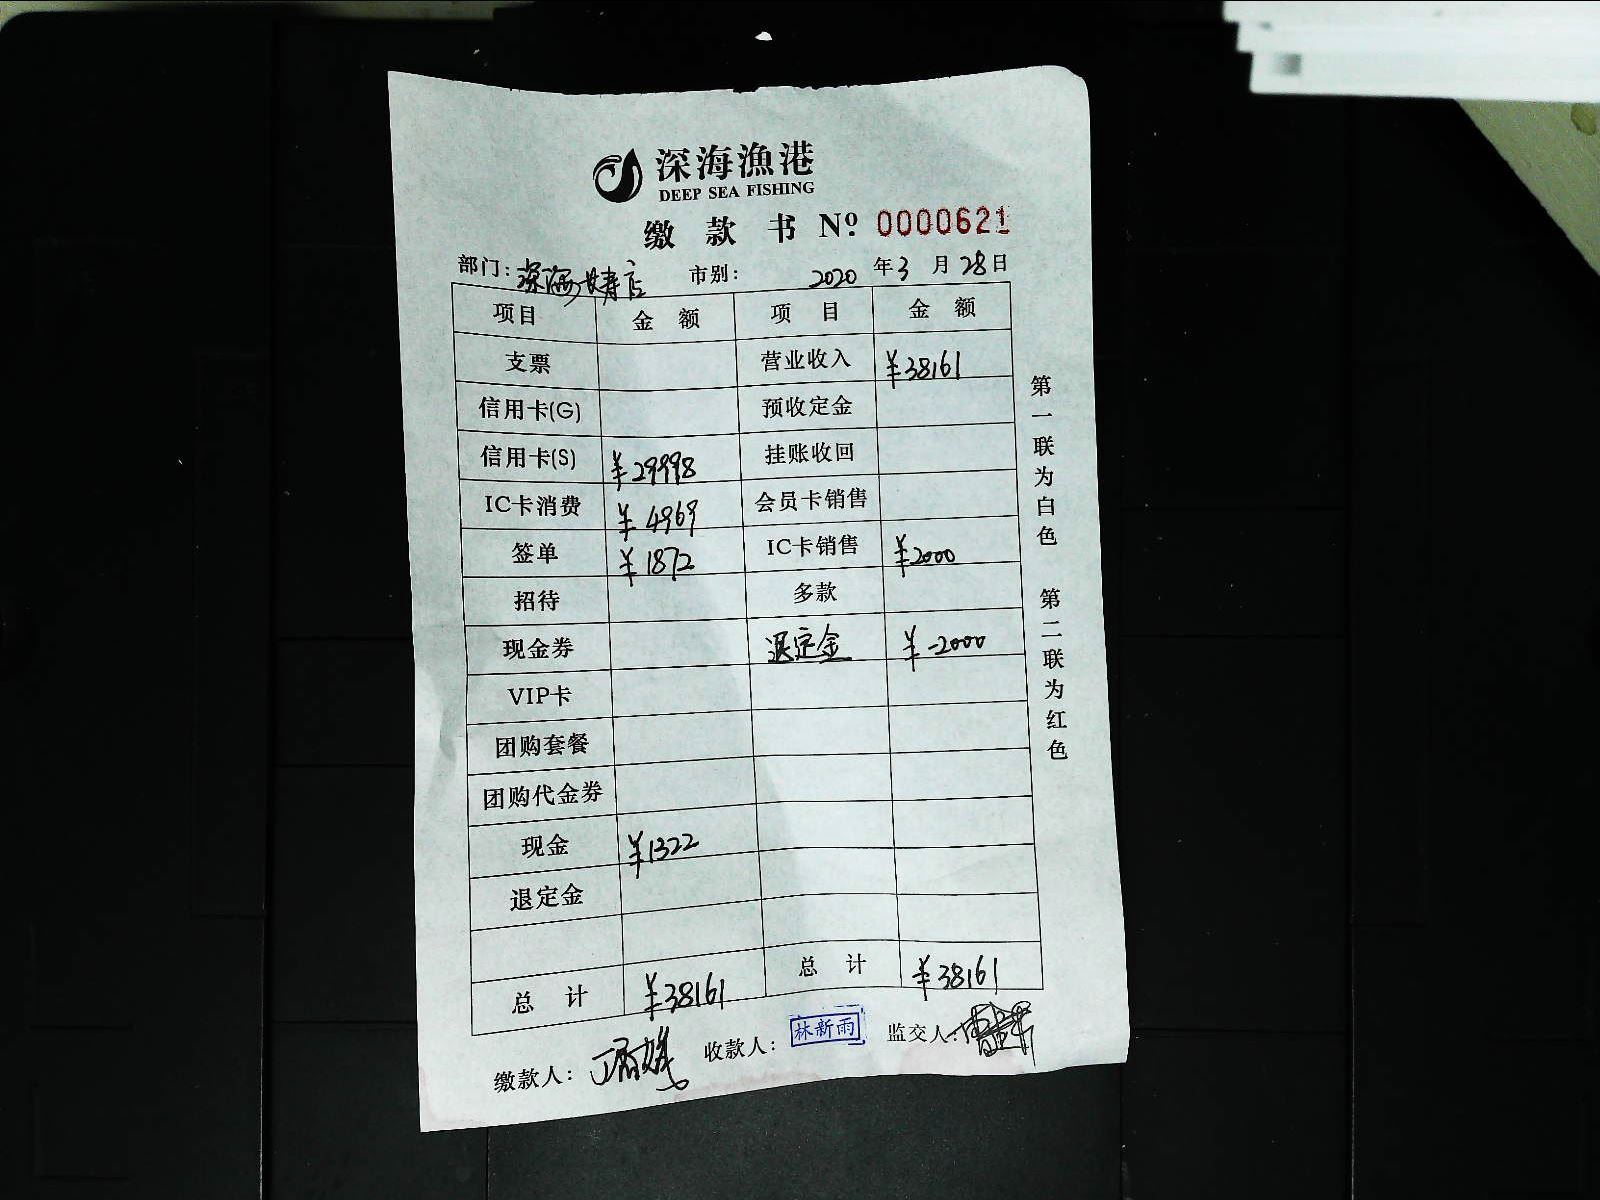 深海漁港
DEEP SEA FISHING
缴款书 Nº: 0000621
部门: 深海长寿店 市别: 2020年3月28日
项目 金额 项目 金额
支票 营业收入 ¥38161
信用卡(G) 预收定金
信用卡(S) ¥29998 挂账收回
IC卡消费 ¥4969 会员卡销售
签单 ¥1872 IC卡销售 ¥2000
招待 多款
现金券 退定金 ¥-2000
VIP卡
团购套餐
团购代金券
现金 ¥1322
退定金
总计 ¥38161 总计 ¥38161
缴款人: 收款人: 林新雨 监交人:
第一联为白色 第二联为红色